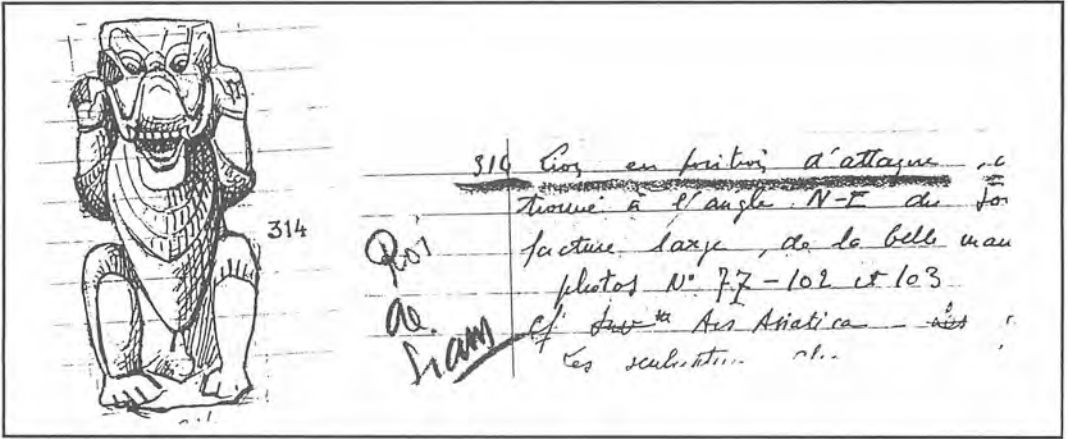 314
314 Lion en position d'attaque
trouvé à l'angle N-E du
facture large, de la belle
photos N° 77-102 et 103
cf Ars Asiatica
Les
Roi
de
Siam